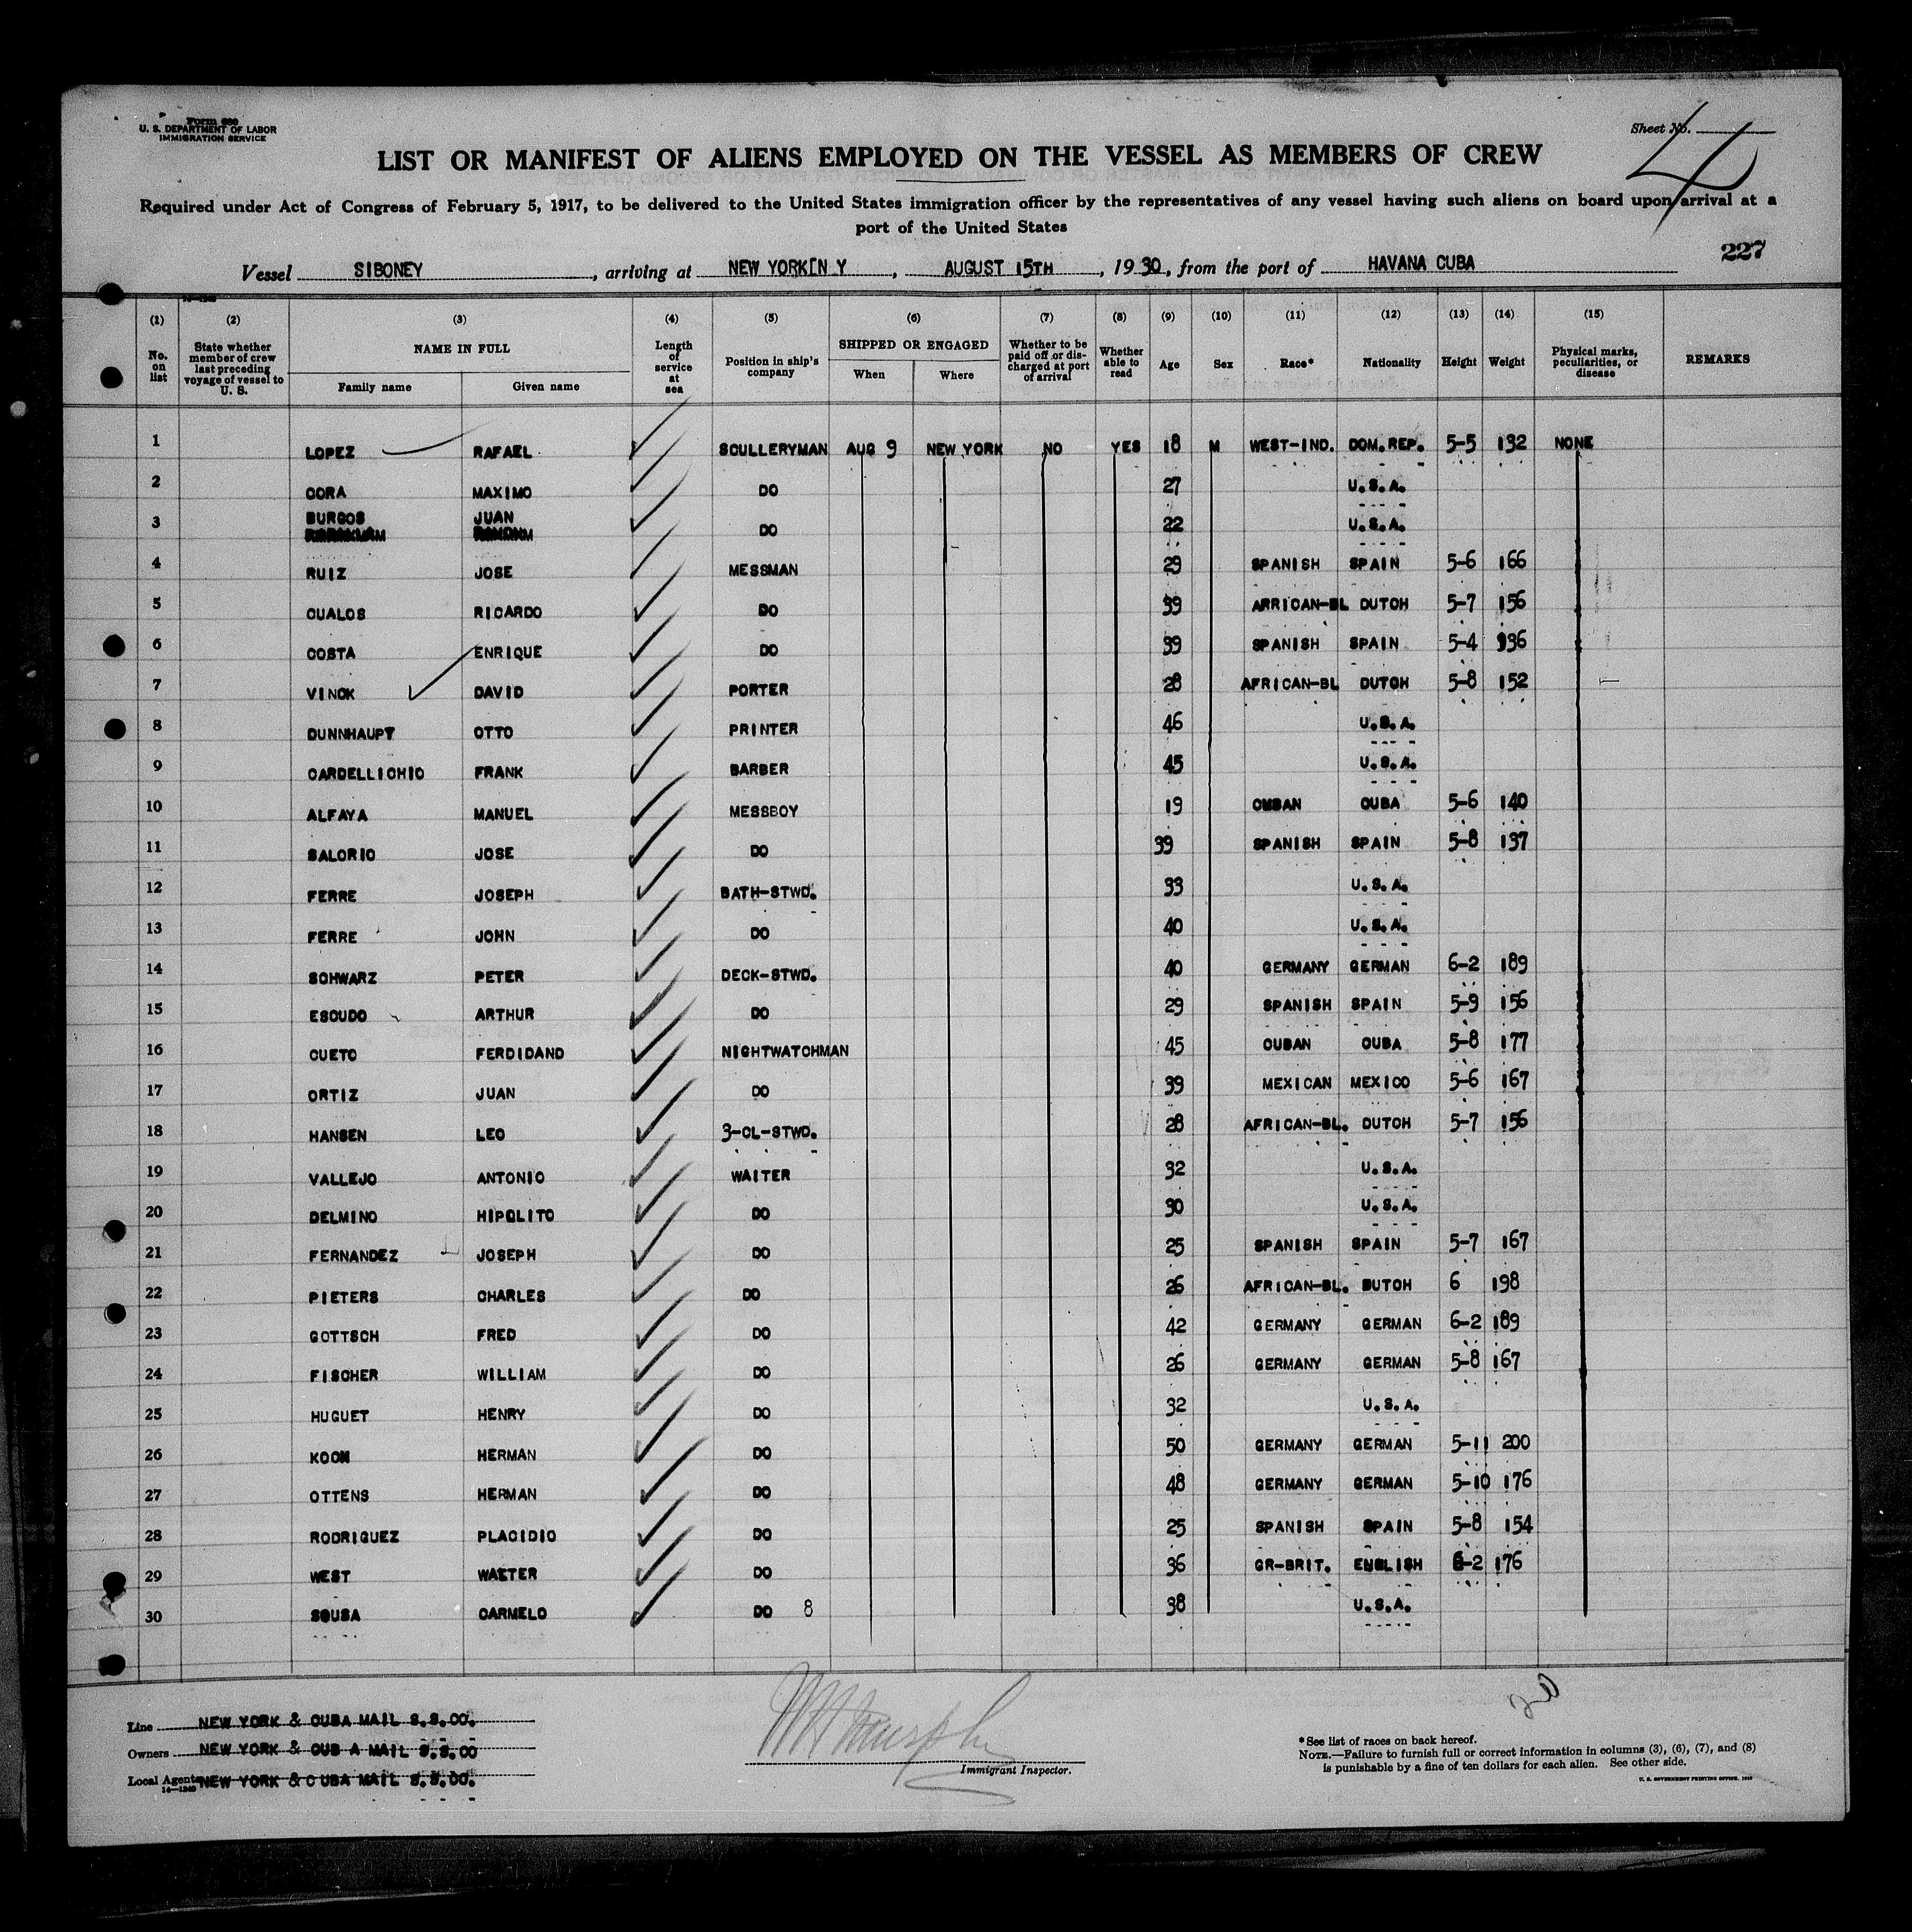 Form 680
U. S. DEPARTMENT OF LABOR
IMMIGRATION SERVICE
Sheet No. 4
LIST OR MANIFEST OF ALIENS EMPLOYED ON THE VESSEL AS MEMBERS OF CREW
Required under Act of Congress of February 5, 1917, to be delivered to the United States immigration officer by the representatives of any vessel having such aliens on board upon arrival at a
port of the United States
227
Vessel SIBONEY, arriving at NEW YORK[N Y, AUGUST 15TH, 1930, from the port of HAVANA CUBA
(1) (2) (3) (4) (5) (6) (7) (8) (9) (10) (11) (12) (13) (14) (15)
No. on list State whether member of crew last preceding voyage of vessel to U. S. NAME IN FULL Family name Given name Length of service at sea Position in ship's company SHIPPED OR ENGAGED When Where Whether to be paid off or discharged at port of arrival Whether able to read Age Sex Race* Nationality Height Weight Physical marks, peculiarities, or disease REMARKS
1 LOPEZ RAFAEL SCULLERYMAN AUG 9 NEW YORK NO YES 18 M WEST-IND. DOM.REP. 5-5 132 NONE
2 CORA MAXIMO DO 27 U.S.A.
3 BURGOS JUAN DO 22 U.S.A.
4 RUIZ JOSE MESSMAN 29 SPANISH SPAIN 5-6 166
5 CUALOS RICARDO DO 39 ARRICAN-BL DUTCH 5-7 156
6 COSTA ENRIQUE DO 39 SPANISH SPAIN 5-4 336
7 VINCK DAVID PORTER 28 AFRICAN-BL DUTCH 5-8 152
8 DUNNHAUPT OTTO PRINTER 46 U.S.A.
9 CARDELLICHIO FRANK BARBER 45 U.S.A.
10 ALFAYA MANUEL MESSBOY 19 CUBAN CUBA 5-6 140
11 SALORIO JOSE DO 39 SPANISH SPAIN 5-8 137
12 FERRE JOSEPH BATH-STWD. 33 U.S.A.
13 FERRE JOHN DO 40 U.S.A.
14 SCHWARZ PETER DECK-STWD. 40 GERMANY GERMAN 6-2 189
15 ESCUDO ARTHUR DO 29 SPANISH SPAIN 5-9 156
16 CUETO FERDIDAND NIGHTWATCHMAN 45 CUBAN CUBA 5-8 177
17 ORTIZ JUAN DO 39 MEXICAN MEXICO 5-6 167
18 HANSEN LEO 3-CL-STWD. 28 AFRICAN-BL. DUTCH 5-7 156
19 VALLEJO ANTONIO WAITER 32 U.S.A.
20 DELMINO HIPOLITO DO 30 U.S.A.
21 FERNANDEZ JOSEPH DO 25 SPANISH SPAIN 5-7 167
22 PIETERS CHARLES DO 26 AFRICAN-BL. DUTCH 6 198
23 GOTTSCH FRED DO 42 GERMANY GERMAN 6-2 189
24 FISCHER WILLIAM DO 26 GERMANY GERMAN 5-8 167
25 HUGUET HENRY DO 32 U.S.A.
26 KOCH HERMAN DO 50 GERMANY GERMAN 5-11 200
27 OTTENS HERMAN DO 48 GERMANY GERMAN 5-10 176
28 RODRIGUEZ PLACIDIO DO 25 SPANISH SPAIN 5-8 154
29 WEST WALTER DO 36 GR-BRIT. ENGLISH 6-2 176
30 SOUSA CARMELO DO 8 38 U.S.A.
Line NEW YORK & CUBA MAIL S.S.CO.
Owners NEW YORK & CUB A MAIL S.S.CO
Local Agents NEW YORK & CUBA MAIL S.S.CO.
14-1240
Murphy
Immigrant Inspector.
*See list of races on back hereof.
NOTE.—Failure to furnish full or correct information in columns (3), (6), (7), and (8)
is punishable by a fine of ten dollars for each alien. See other side.